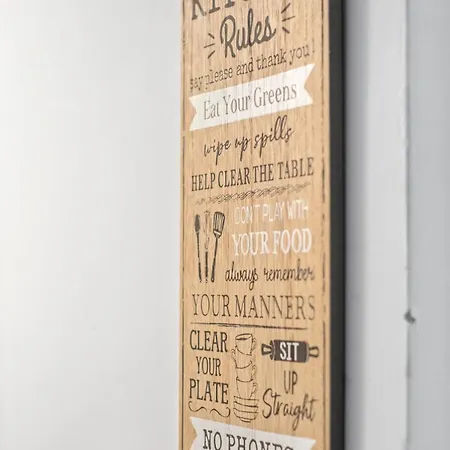 KITCHEN
Rules
say please and thank you!
Eat Your Greens
wipe up spills
HELP CLEAR THE TABLE
DON'T PLAY WITH
YOUR FOOD
always remember
YOUR MANNERS
CLEAR
YOUR
PLATE
SIT
UP
Straight
NO PHONES